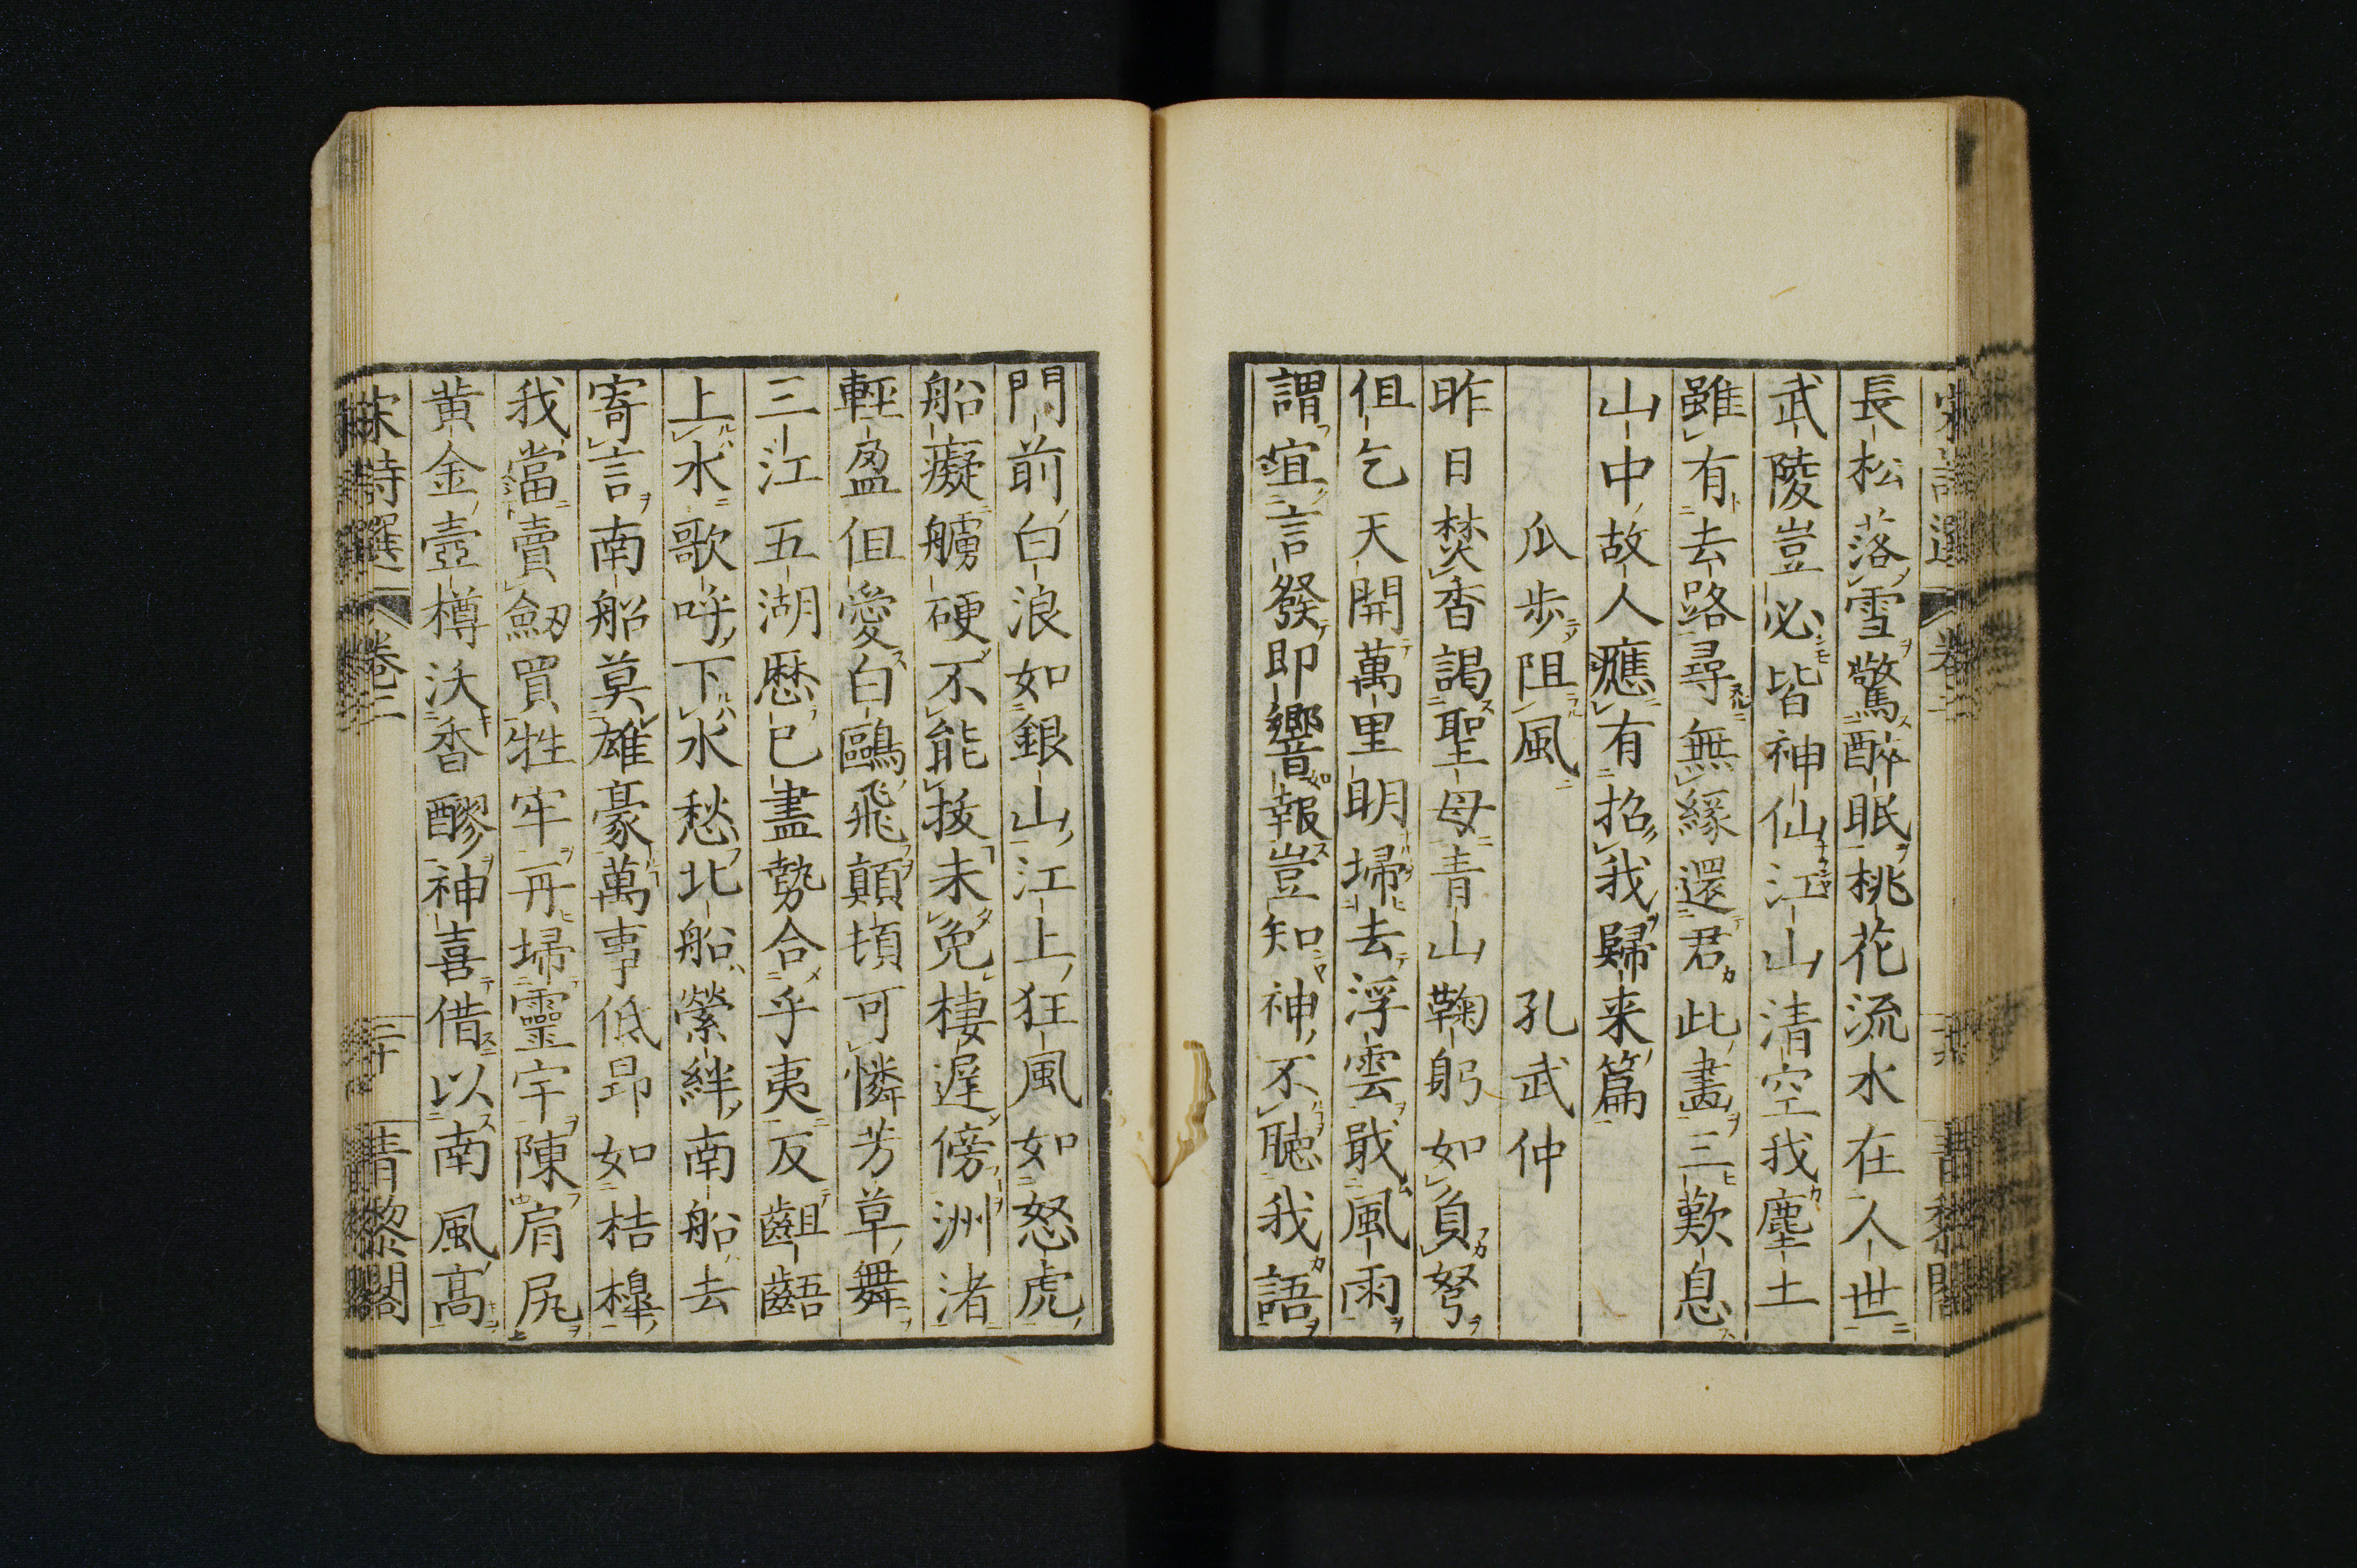 長松落雪驚醉眠桃花流水在人世
武陵豈必皆神仙江山清空我塵土
雖有去路尋無緣還君此畫三歎息
山中故人應有招我歸来篇
瓜歩阻風　孔武仲
昨日焚香謁聖母青山鞠躬如負弩
但乞天開萬里明掃去浮雲戢風雨
謂宜言發即響報豈知神不聽我語
門前白浪如銀山江上狂風如怒虎
船癡艣硬不能拔未免棲遲傍洲渚
輕盈但愛白鷗飛顛頓可憐芳草舞
三江五湖歷已盡勢合乎夷反齟齬
上水歌呼下水愁北船縈絆南船去
寄言南船莫雄豪萬事低昂如桔槹
我當賣劔買牲牢再掃靈宇陳肩尻
黄金壺樽沃香醪神喜借以南風髙
宋詩選　卷三　二十　青藜閣